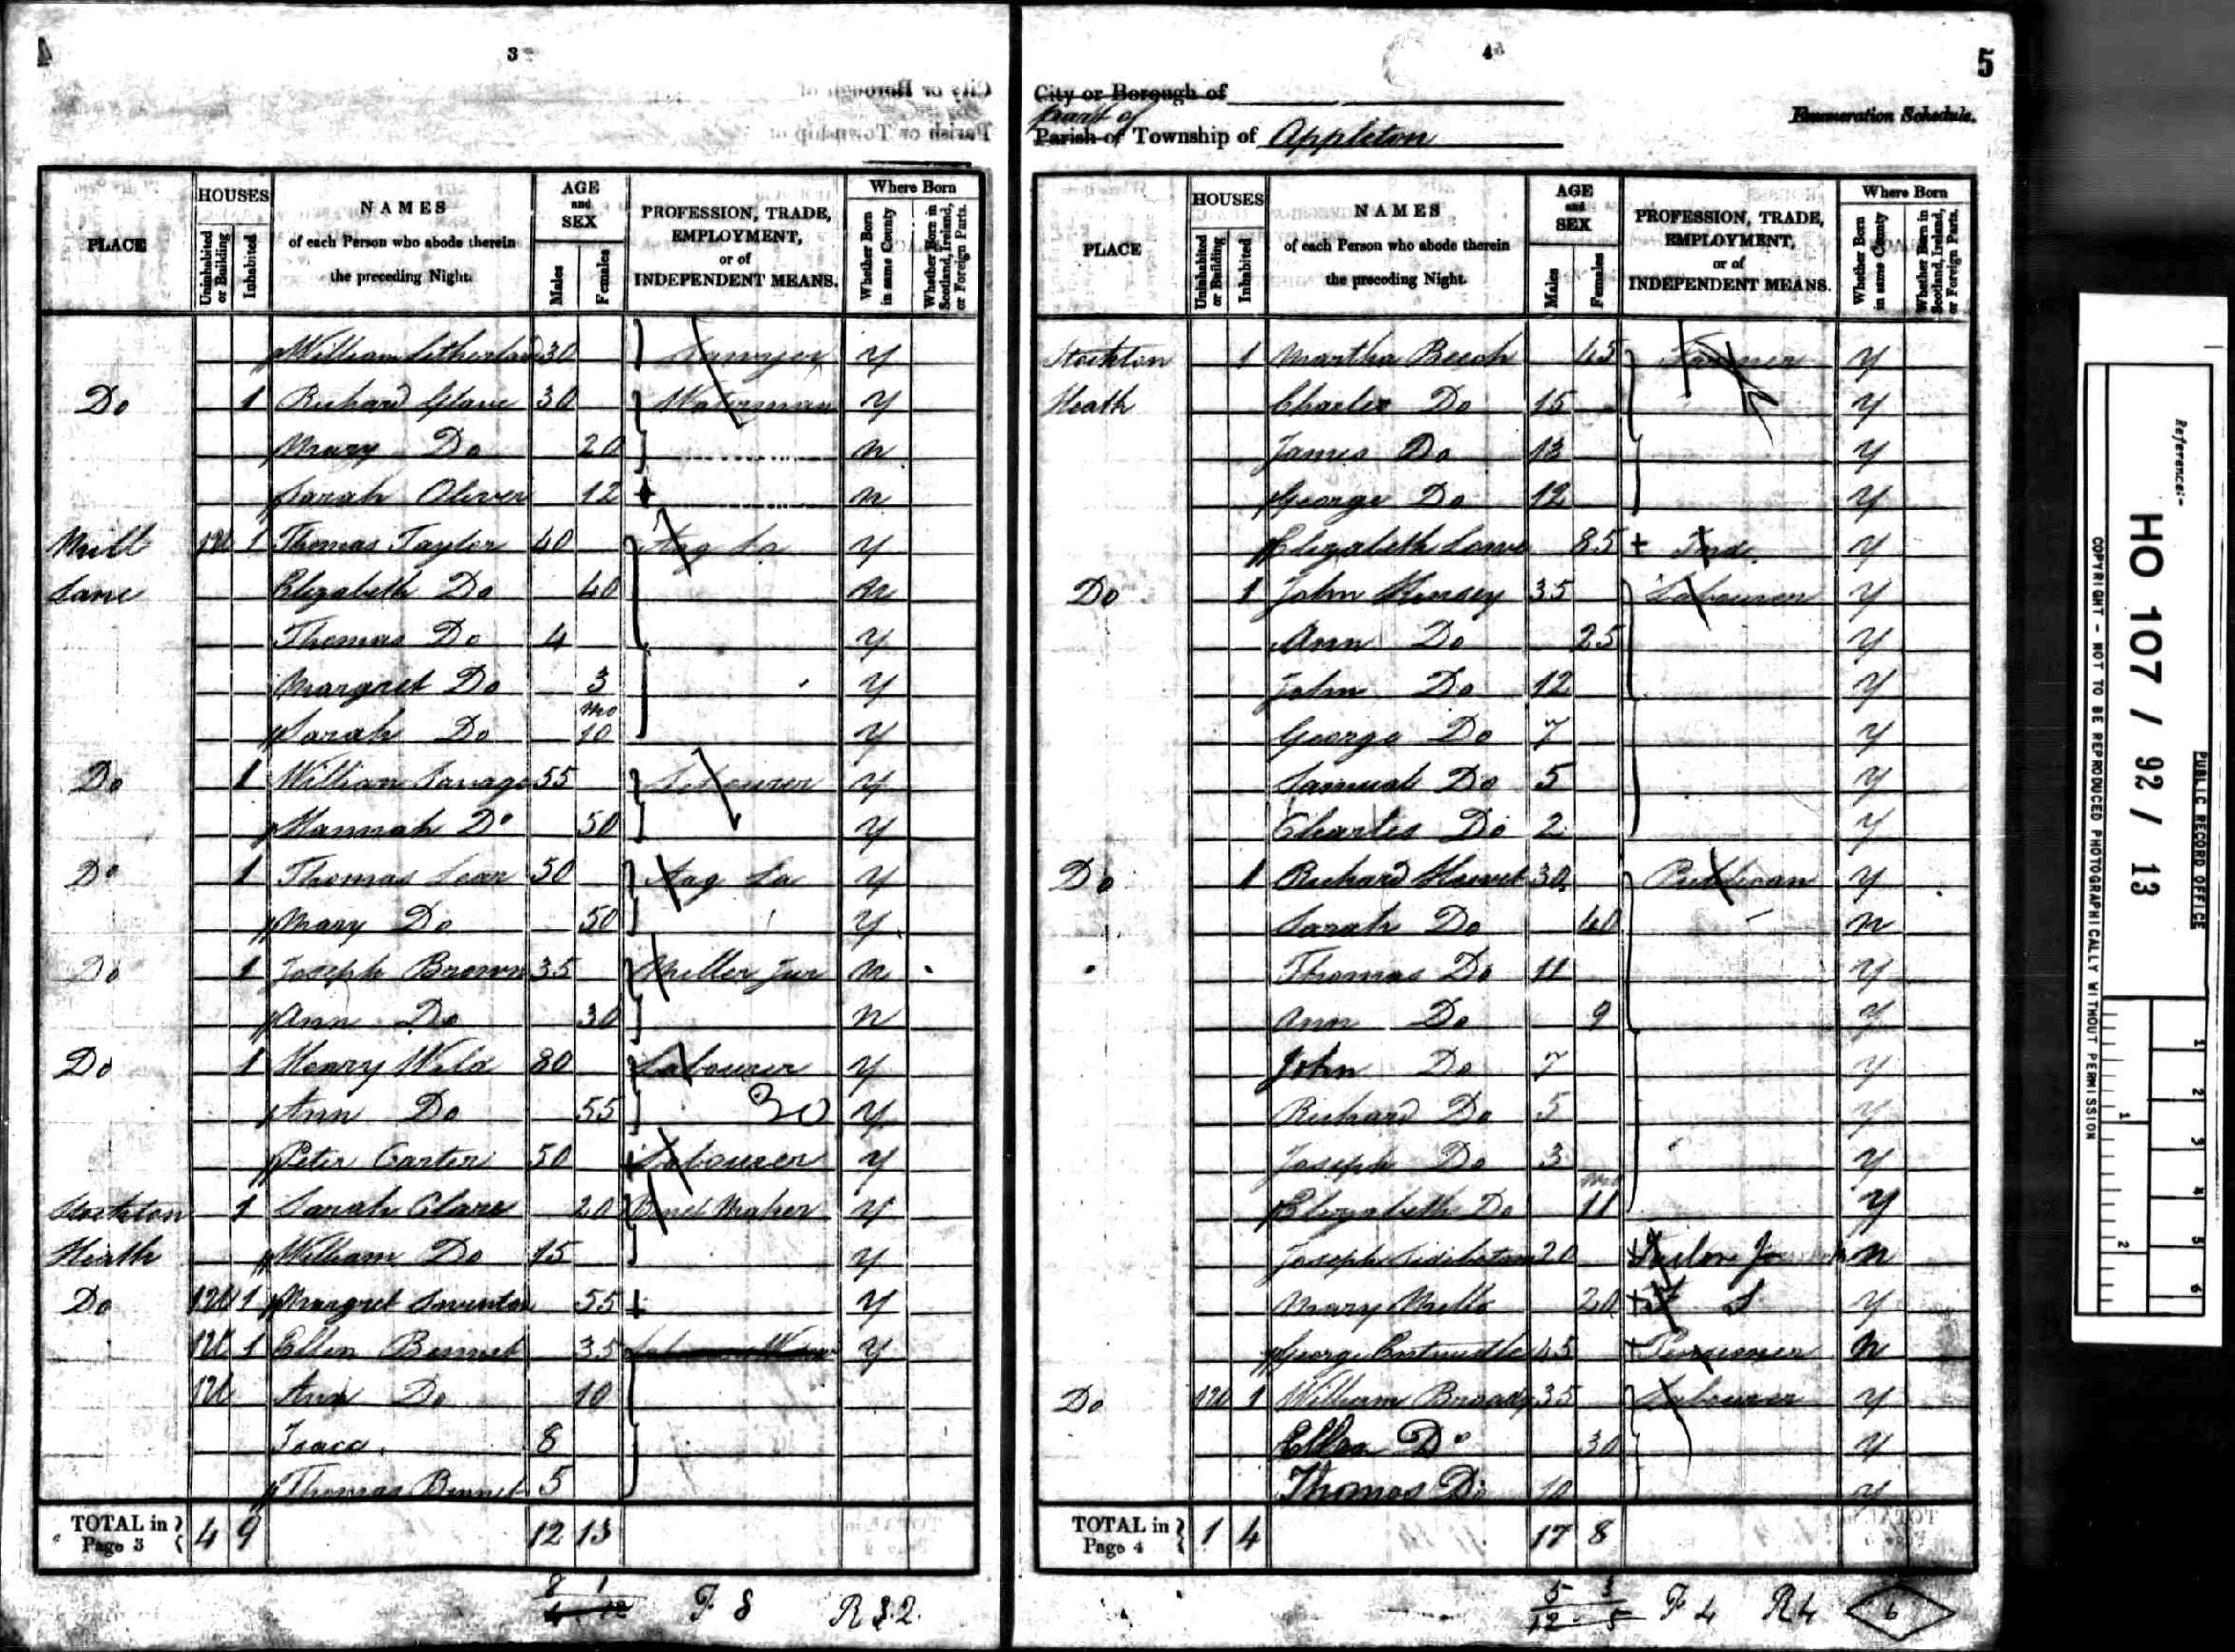 3
HOUSES
AGE
and
SEX
Where Born
PLACE
Uninhabited or Building
Inhabited
NAMES
of each Person who abode therein
the preceding Night.
Males
Females
PROFESSION, TRADE,
EMPLOYMENT,
or of
INDEPENDENT MEANS.
Whether Born in same County
Whether Born in Scotland, Ireland, or Foreign Parts.
William 30 Sawyer Y
Do 1 Richard 30 Waterman Y
Mary Do 20 N
Sarah Oliver 12 N
Mill 1U 1 Thomas Taylor 40 Ag La Y
Lane Elizabeth Do 40 N
Thomas Do 4 Y
Margret Do 3 Y
mo
Sarah Do 10 Y
Do 1 William Savage 55 Labourer Y
Hannah Do 50 Y
Do 1 Thomas 50 Ag La Y
Mary Do 50 Y
Do 1 Joseph Brown 35 Miller Jur N
Ann Do 30 N
Do 1 Henry Wild 80 Labourer Y
Ann Do 55 30 Y
Peter Carter 50 Labourer Y
Stockton 1 Sarah Clare 20 Bonet Maker Y
Heath William Do 15 Y
Do 1U 1 Margret 55 Y
1U 1 Ellen Bennet 35 Y
1U Ann Do 10
Isaac 8
Thomas Bennet 5
TOTAL in Page 3 4 9 12 13
F 8 R 32
4
5
City or Borough of
part of
Parish of Township of Appleton
Enumeration Schedule.
HOUSES
AGE
and
SEX
Where Born
PLACE
Uninhabited or Building
Inhabited
NAMES
of each Person who abode therein
the preceding Night.
Males
Females
PROFESSION, TRADE,
EMPLOYMENT,
or of
INDEPENDENT MEANS.
Whether Born in same County
Whether Born in Scotland, Ireland, or Foreign Parts.
Stockton 1 Martha Beech 45 Farmer Y
Heath Charles Do 15 Y
James Do 13 Y
George Do 12 Y
Elizabeth Lowe 85 Ind. Y
Do 1 John Kinsey 35 Labourer Y
Ann Do 25 Y
John Do 12 Y
George Do 7 Y
Samuel Do 5 Y
Charles Do 2 Y
Do 1 Richard 30 Publican Y
Sarah Do 40 N
Thomas Do 11 Y
Ann Do 9 Y
John Do 7 Y
Richard Do 5 Y
Joseph Do 3 Y
mo
Elizabeth Do 11 Y
Joseph 20 N
Mary Mills 20 F S Y
George 45 Pensioner N
Do 1U 1 William 35 Labourer Y
Ellen Do 30 Y
Thomas Do 10 Y
TOTAL in Page 4 1 4 17 8
F 4 R 4 6
Reference:-
HO 107 / 92 / 13
PUBLIC RECORD OFFICE
COPYRIGHT - NOT TO BE REPRODUCED PHOTOGRAPHICALLY WITHOUT PERMISSION
1 2 3 4 5 6
1 2